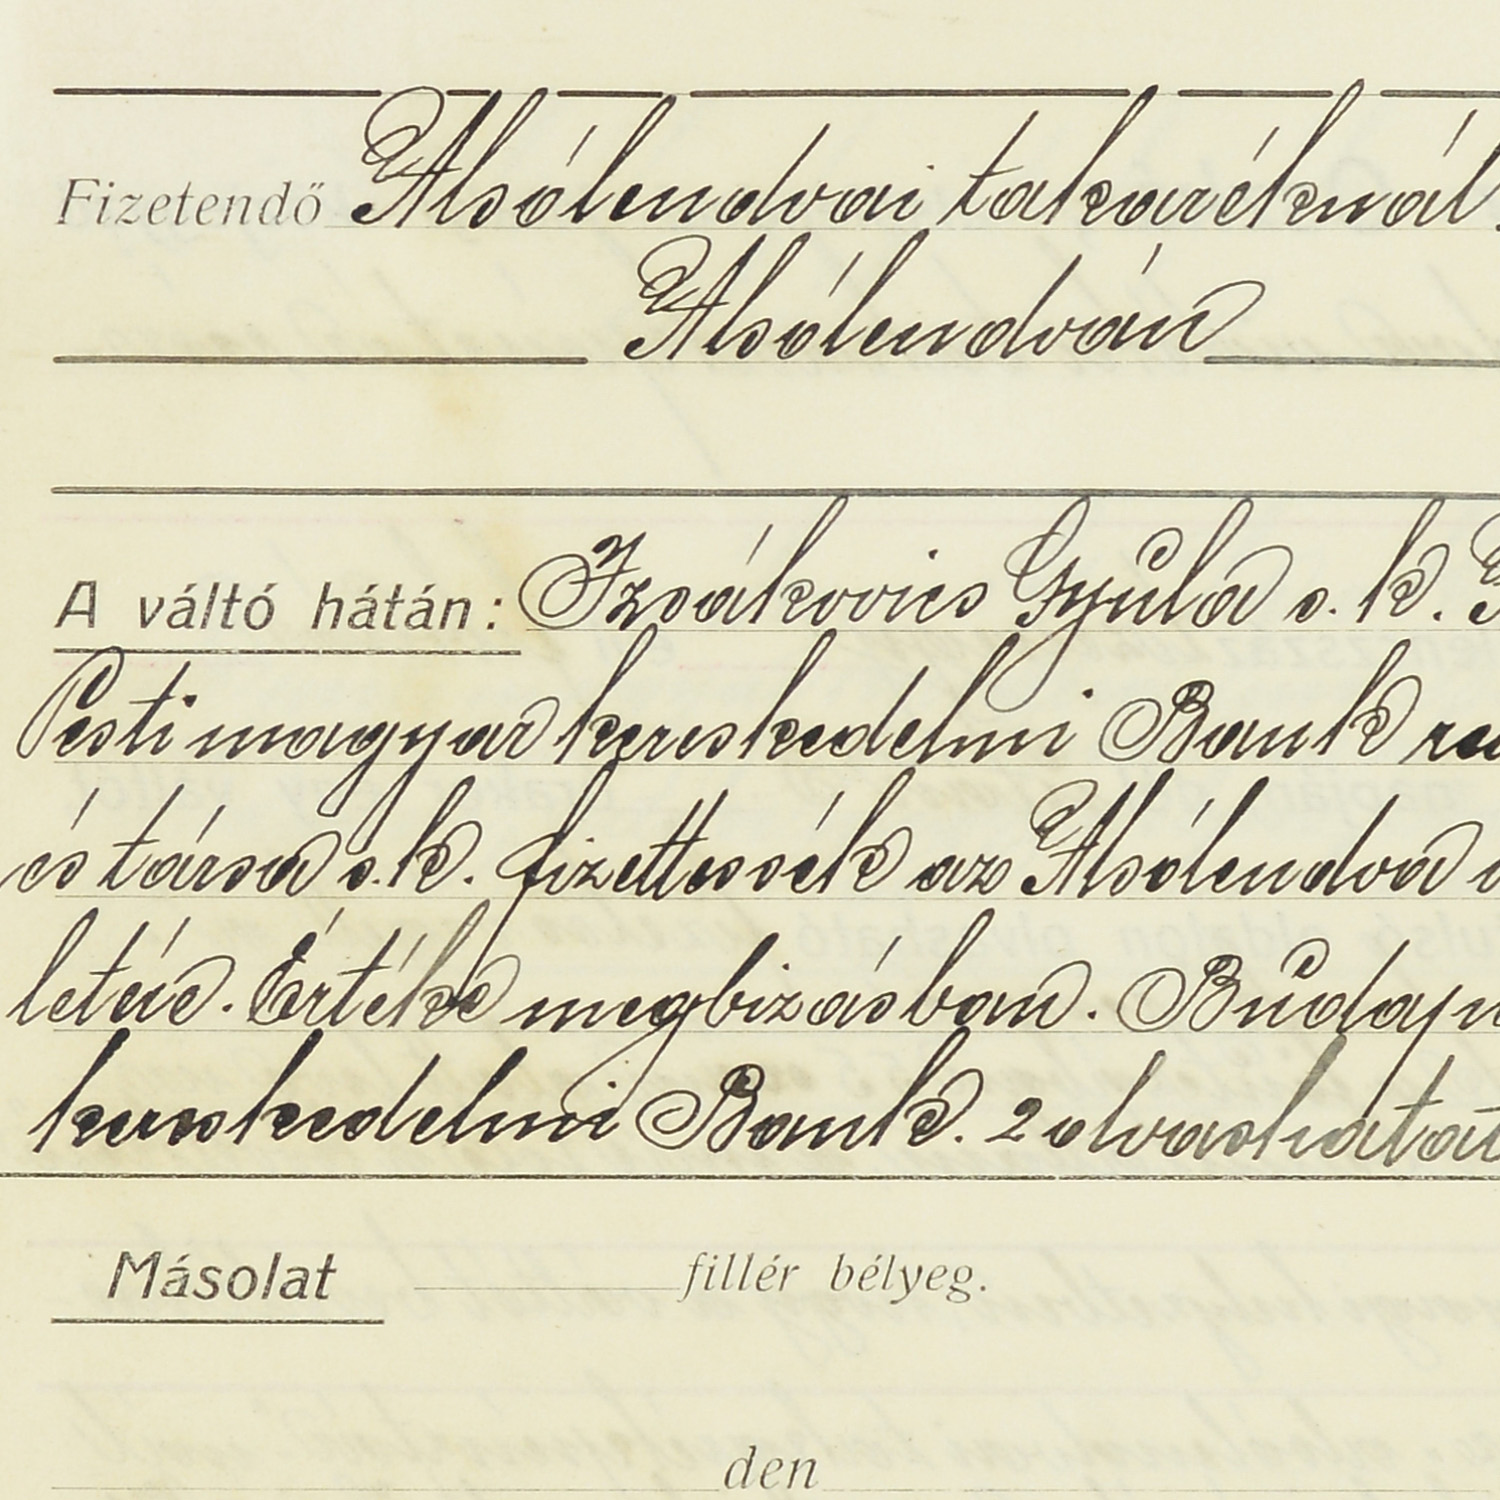 Fizetendő Alsólendvai takaréknál
Alsólendván
A váltó hátán: Izsákovics Gyula s. k.
Pesti magyar kereskedelmi Bank
és társa s. k. fizettessék az Alsólendva
letére. Értéke megbizásban. Budap
kereskedelmi Bank. 2 olvashatat
Másolat fillér bélyeg.
den